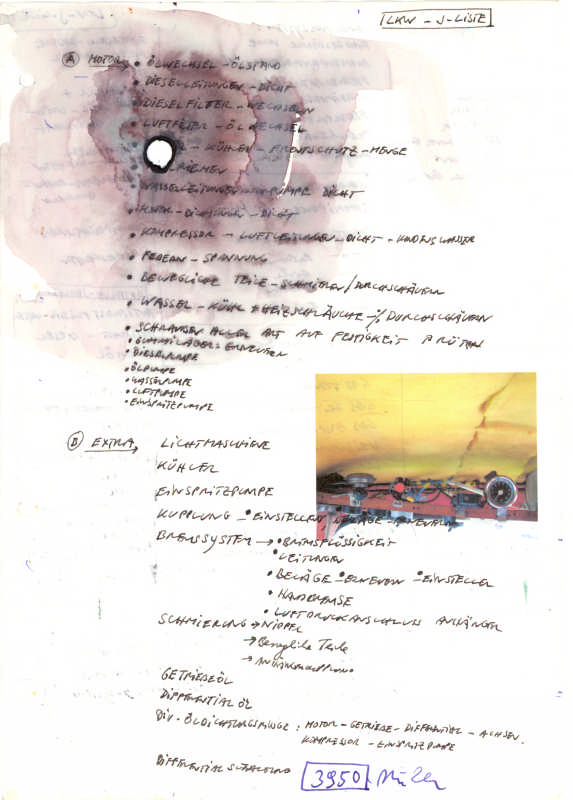 LKW - J-LISTE
A MOTOR → • ÖLWECHSEL - ÖLSTAND
• DIESELLEITUNGEN - DICHT
• DIESELFILTER - WECHSELN
• LUFTFILTER - ÖLWECHSEL
- KÜHLER - FROSTSCHUTZ - MENGE
RIEMEN
• WASSERLEITUNGEN PUMPE DICHT
• MOTOR - DICHTUNG - DICHT
• KOMPRESSOR - LUFTLEITUNGEN - DICHT - KONDENSWASSER
• FEDERN - SPANNUNG
• BEWEGLICHE TEILE - SCHMIEREN /
• WASSER - KÜHL + HEIZSCHLÄUCHE -
• SCHRAUBEN ALLER ART AUF FESTIGKEIT PRÜFEN
• GUMMILAGER: ERNEUERN
• DIESELPUMPE
• ÖLPUMPE
• WASSERPUMPE
• LUFTPUMPE
• EINSPRITZPUMPE
B EXTRA → LICHTMASCHINE
KÜHLER
EINSPRITZPUMPE
KUPPLUNG - • EINSTELLEN BELÄGE - ERNEUERN
BREMSSYSTEM → • BREMSFLÜSSIGKEIT
• LEITUNGEN
• BELÄGE • ERNEUERN • EINSTELLEN
• HANDBREMSE
• LUFTDRUCKANSCHLUSS ANHÄNGER
SCHMIERUNG → NIPPEL
→ Bewegliche Teile
→
GETRIEBEÖL
DIFFERENTIALÖL
DIV. ÖLDICHTUNGSRINGE : MOTOR - GETRIEBE - DIFFERENTIAL - ACHSEN.
KOMPRESSOR - EINSPRITZPUMPE
DIFFERENTIAL SCHALTUNG
3950